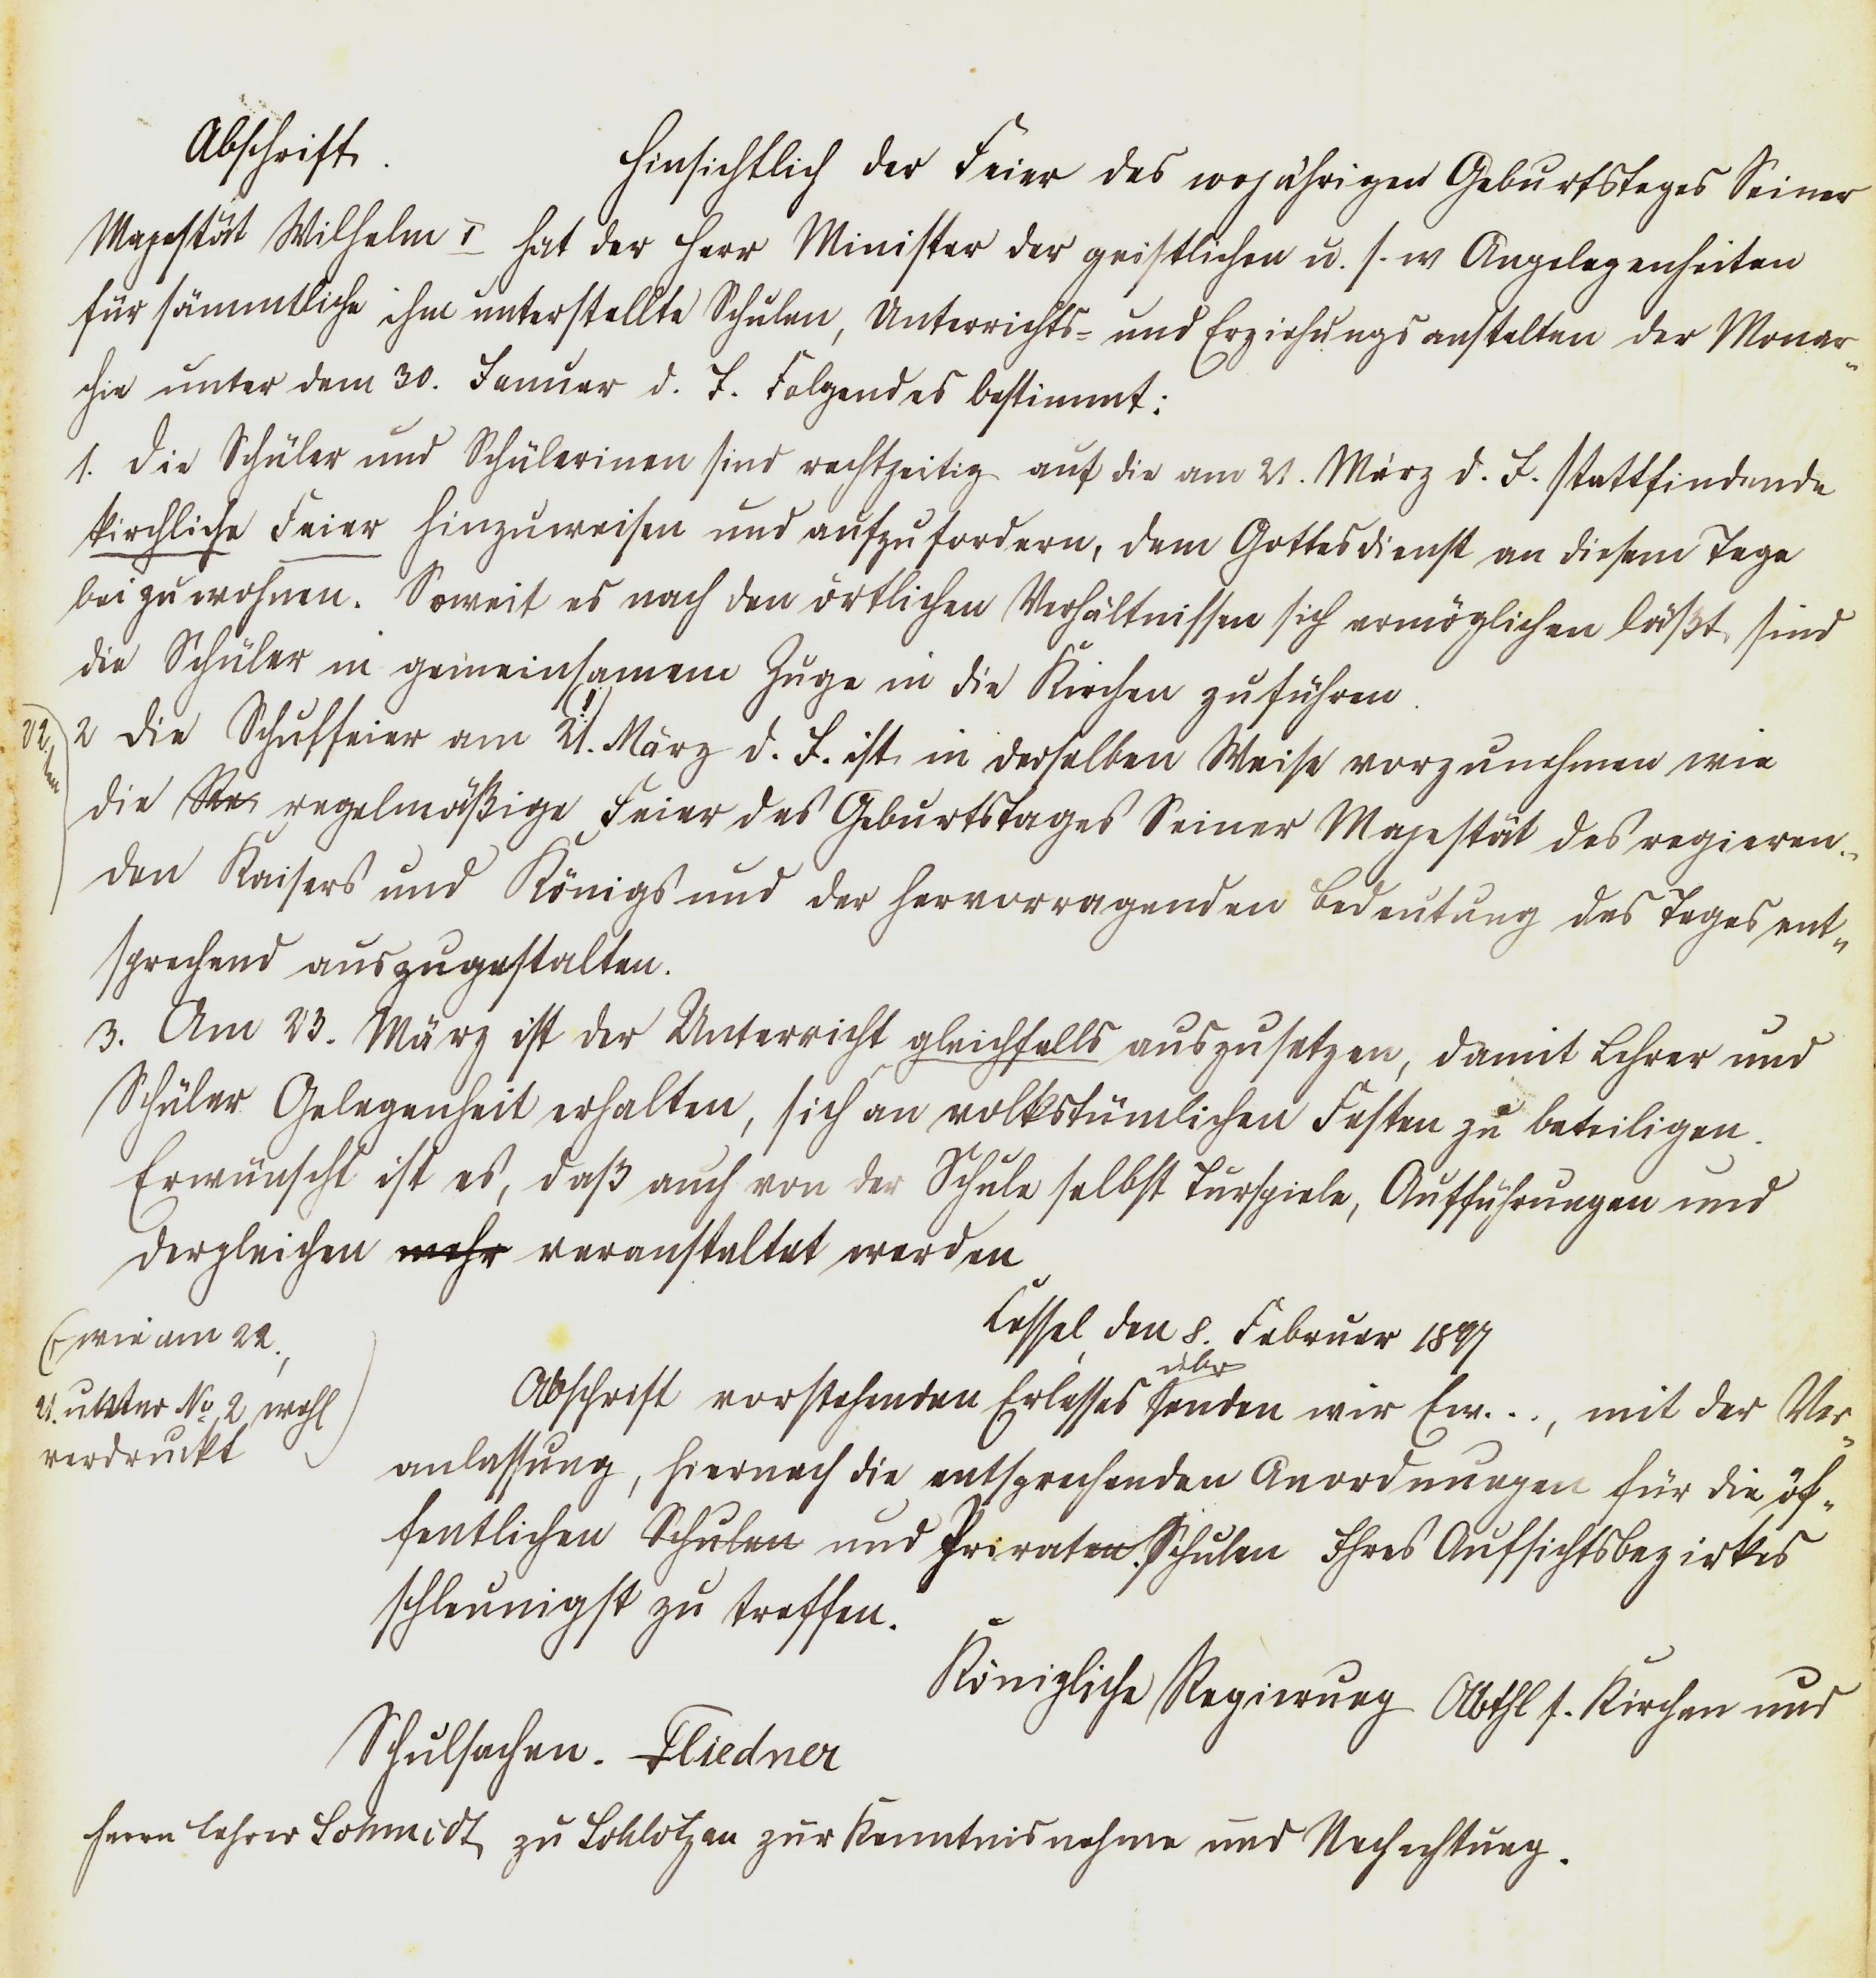 Abschrift. Hinsichtlich der Feier des 100jährigen Geburtstages Seiner
Majestät Wilhelm I hat der Herr Minister der geistlichen u. s. w Angelegenheiten
für sämmtliche ihm unterstellte Schulen, Unterrichts- und Erziehungsanstalten der Monar-
chie unter dem 30. Januar d. J. Folgendes bestimmt:
1. Die Schüler und Schülerinen sind rechtzeitig auf die am 21. März d. J. stattfindende
kirchliche Feier hinzuweisen und aufzufordern, dem Gottesdienst an diesem Tage
beizuwohnen. Soweit es nach den örtlichen Verhältnissen sich ermöglichen läßt, sind
die Schüler in gemeinsamem Zuge in die Kirchen zuführen.
22.
2 Die Schulfeier am 21. (!) März d. J. ist in derselben Weise vorzunehmen wie
die Re regelmäßige Feier des Geburtstages Seiner Majestät des regieren-
den Kaisers und Königs und der hervorragenden Bedeutung des Tages ent-
sprechend auszugestalten.
3. Am 23. März ist der Unterricht gleichfalls auszusetzen, damit Lehrer und
Schüler Gelegenheit erhalten, sich an volkstümlichen Festen zu beteiligen.
Erwünscht ist es, daß auch von der Schule selbst Turspiele, Aufführungen und
dergleichen mehr veranstaltet werden
Cassel, den 8. Februar 1897
(wie am 22.,
21. unter No 2 wohl
verdruckt)
über
Abschrift vorstehenden Erlasses senden wir Ew..., mit der Ver-
anlassung, hiernach die entsprechenden Anordnungen für die öf-
fentlichen Schulen und Privaten Schulen Ihres Aufsichtsbezirkes
schleunigst zu treffen.
Königliche Regierung Abthl f. Kirchen und
Schulsachen. Fliedner
Herrn Lehrer Schmidt, zu Schlotzau zur Kenntnisnahme und Nachachtung.